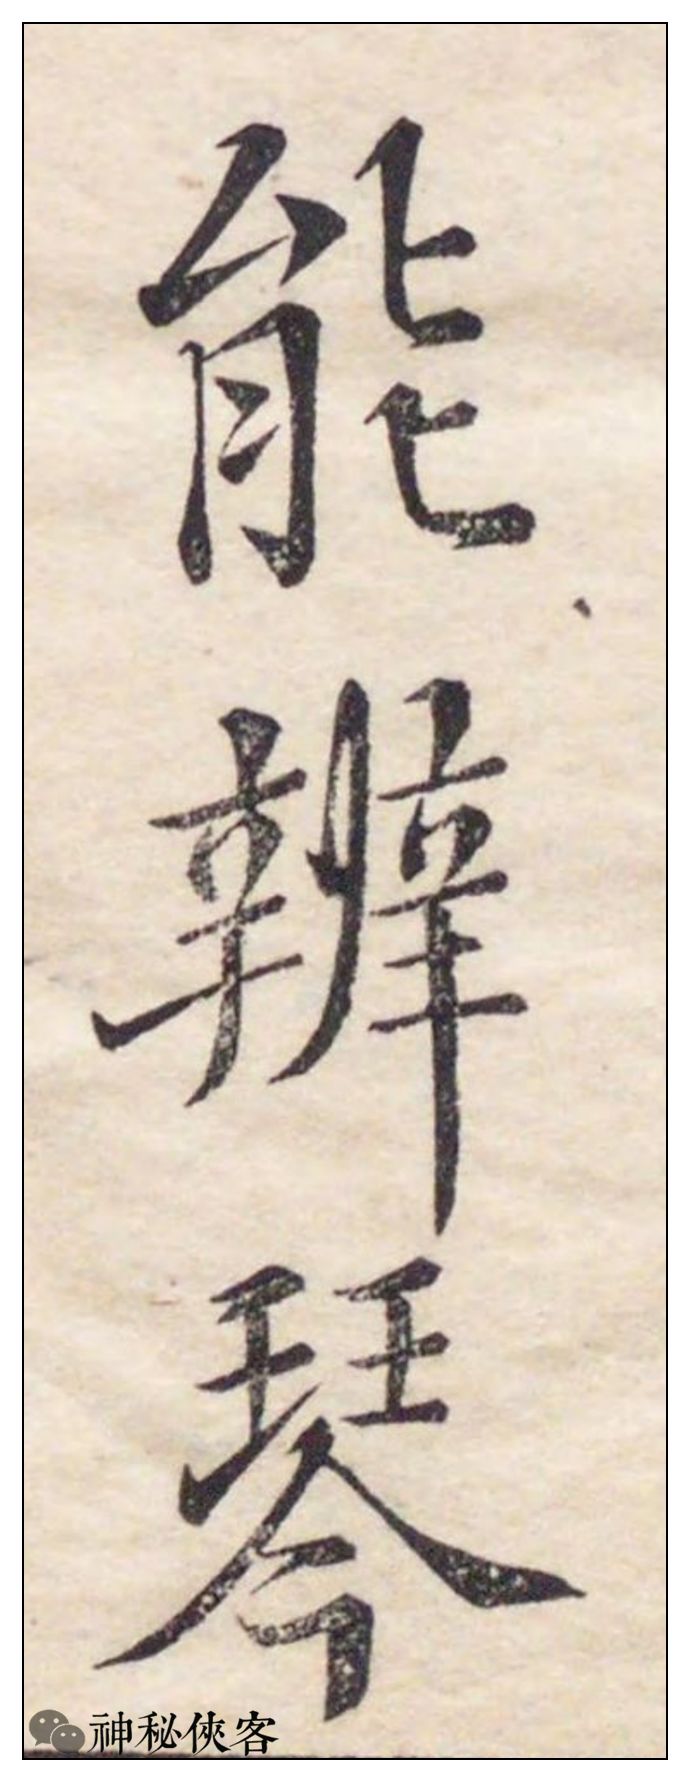 能辨琴
神秘俠客